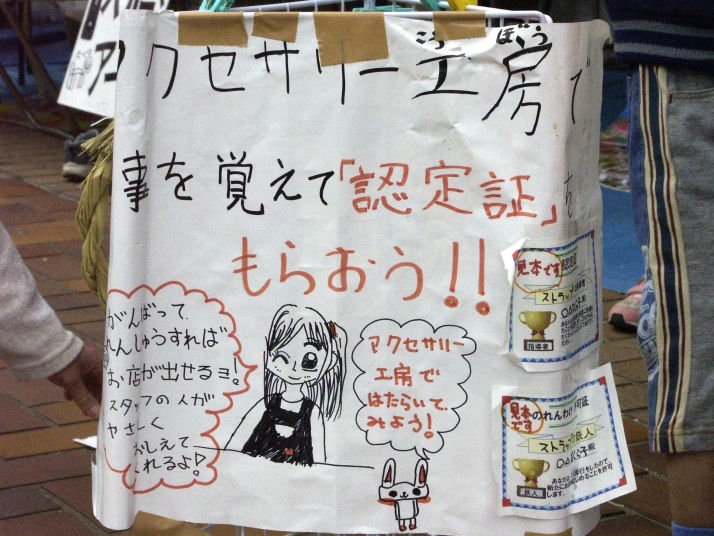 アクセサリー工房で
こう ぼう
事を覚えて「認定証」を
もらおう!!
がんばって、
れんしゅうすれば
お店が出せるヨ!
スタッフの人が
やさしく
おしえて
くれるよ♪
アクセサリー
工房で
はたらいて、
みよう!
見本です
ストラップ
指導者
見本です
のれんわけ許可証
ストラップの鉄人
○△□公子殿
します。
鉄人